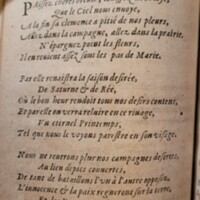 que le Ciel nous envoye,
A la fin sa clemence a pitié de nos pleurs,
Allez dans la campagne, allez dans la prairie,
N'épargnez point les fleurs,
Il en revient assez sous les pas de Marie.
Par elle renaistra la saison desirée,
De Saturne & de Rée,
Où le bon heur rendoit tous nos desirs contens,
Et par elle on verra reluire en ce rivage,
Vn eternel Printemps,
Tel que nous le voyons paroistre en son visage.
Nous ne reverrons plus nos campagnes desertes,
Au lieu d'épics couvertes,
De tant de bataillons l'un à l'autre opposez,
L'innocence & la paix regneront sur la terre,